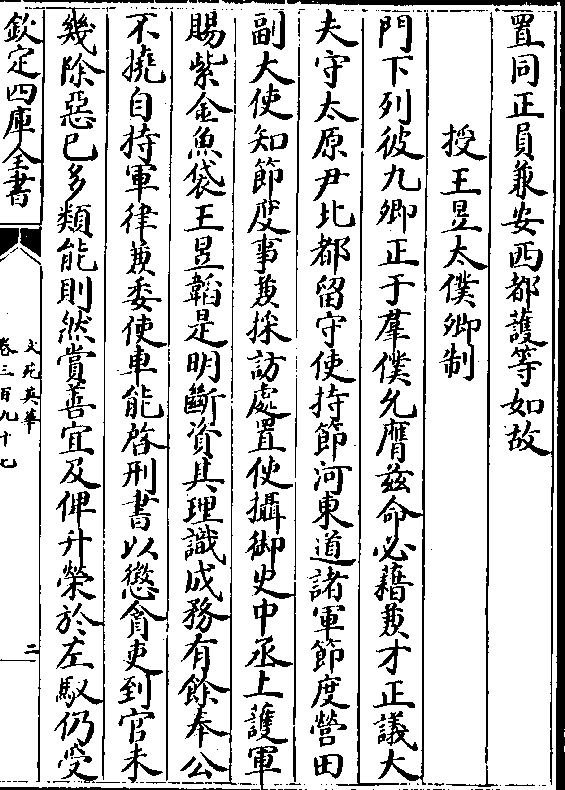 置同正員兼安西都護等如故
授王昱太僕卿制
門下列彼九卿正于羣僕允膺兹命必藉兼才正議大
夫守太原尹北都留守使持節河東道諸軍節度營田
副大使知節度事兼採訪處置使攝御史中丞上護軍
賜紫金魚袋王昱韜是明斷資其理識成務有餘奉公
不撓自持軍律兼委使車能啓刑書以懲貪吏到官未
幾除惡已多類能則然賞善宜及俾升榮於左馭仍受
欽定四庫全書
文苑英華
卷三百九十七
二